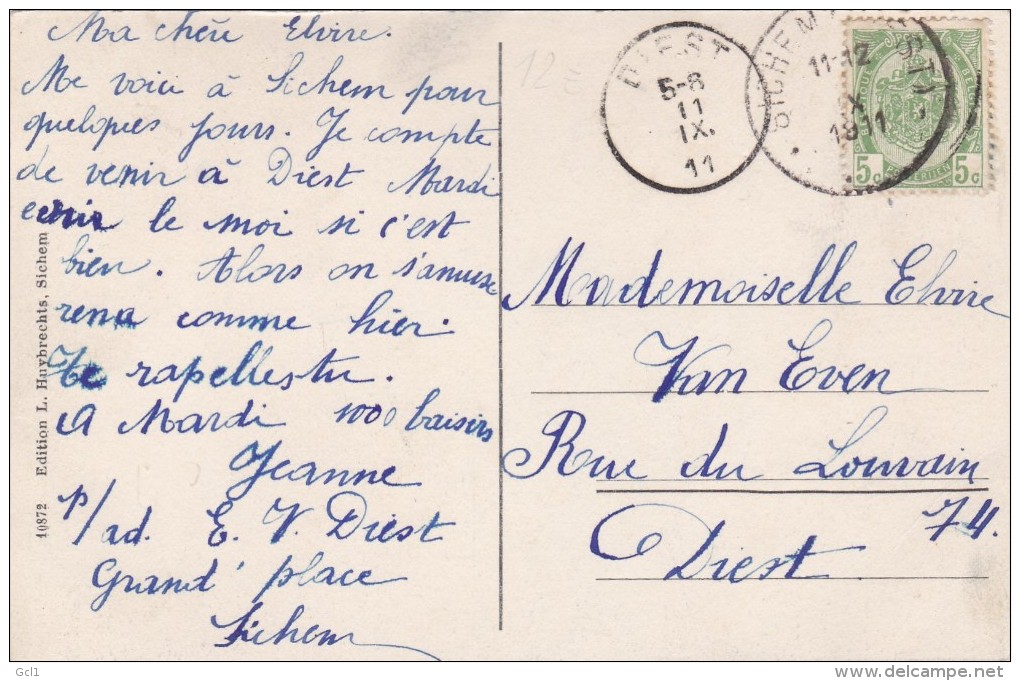 Ma chère Elvire.
Me voici à Sichem pour
quelques jours. Je compte
de venir à Diest Mardi
ecris le moi si c'est
bien. Alors on s'amuse-
rena comme hier.
Te rapellestu.
A Mardi 1000 baisirs
Jeanne
p/ad. E. V. Diest
Grand' place
Sichem
10872 Edition L. Huybrechts, Sichem
DIEST
5-6
11
IX.
11
SICHEM
11-12
IX
1911
5c 5c
Mademoiselle Elvire
Van Even
Rue du Louvain
74.
Diest
Gcl1
delcampe.net